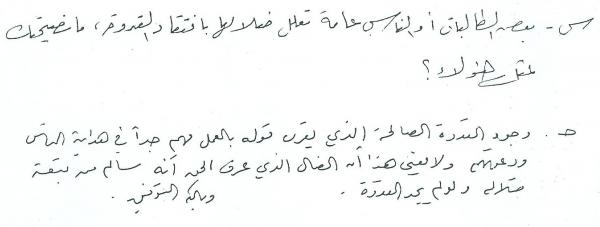 س - بعض الطالبات أو الناس عامة تعلل ضلالها بافتقاد القدوة، ما نصيحتك
لمثل هؤلاء؟
جـ. وجود القدوة الصالحة الذي يقرن قوله بالعمل مهم جداً في هداية الناس
ودعوتهم ولا يعني هذا أن الضال الذي عرف الحق أنه سالم من تبعة
ضلاله ولو لم يجد القدوة. وبالله التوفيق.